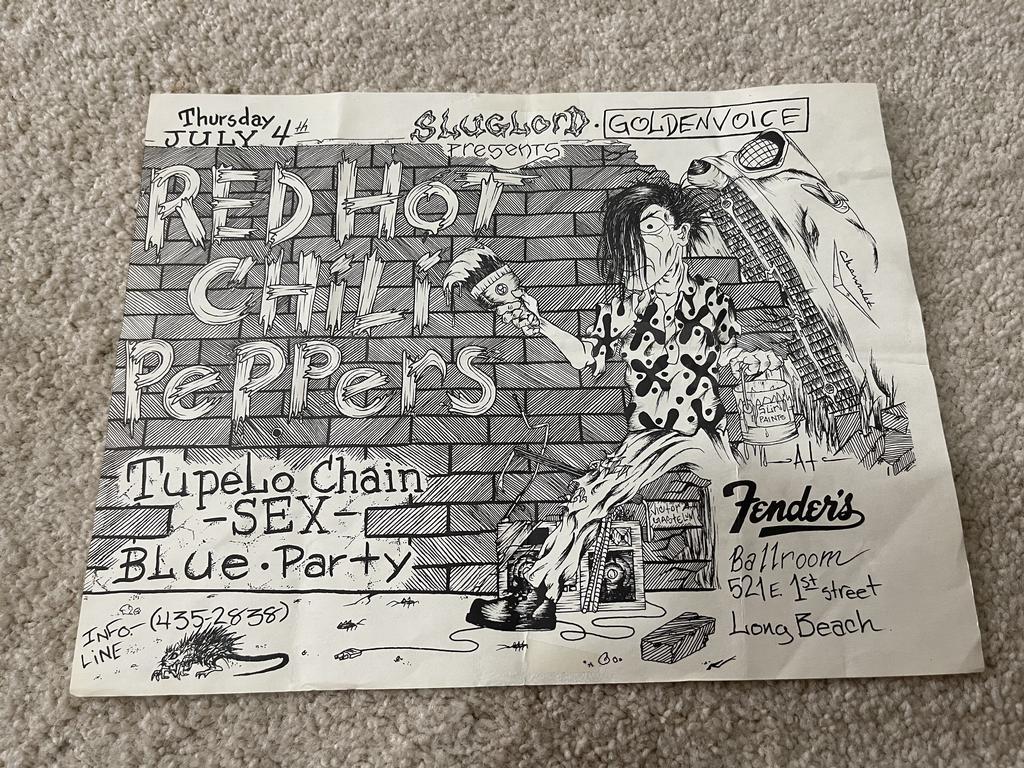 Thursday
JULY 4th
SLUGLORD · GOLDENVOICE
PRESENTS
RED HOT
CHiLi
PEPPErS
chevrolet
PAINTS
-At-
TupeLo Chain
-SEX-
BLue · Party
Fender's
Ballroom
521 E. 1st street
Long Beach
INFO- (435-2838)
LINE